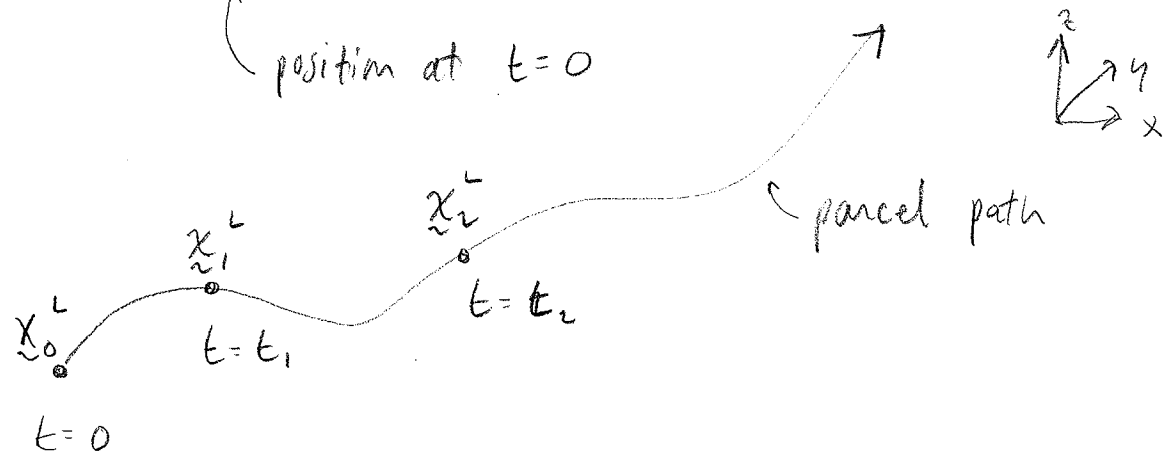 position at t = 0
z
y
x
x₂ᴸ
parcel path
x₁ᴸ
t = t₂
x₀ᴸ
t = t₁
t = 0